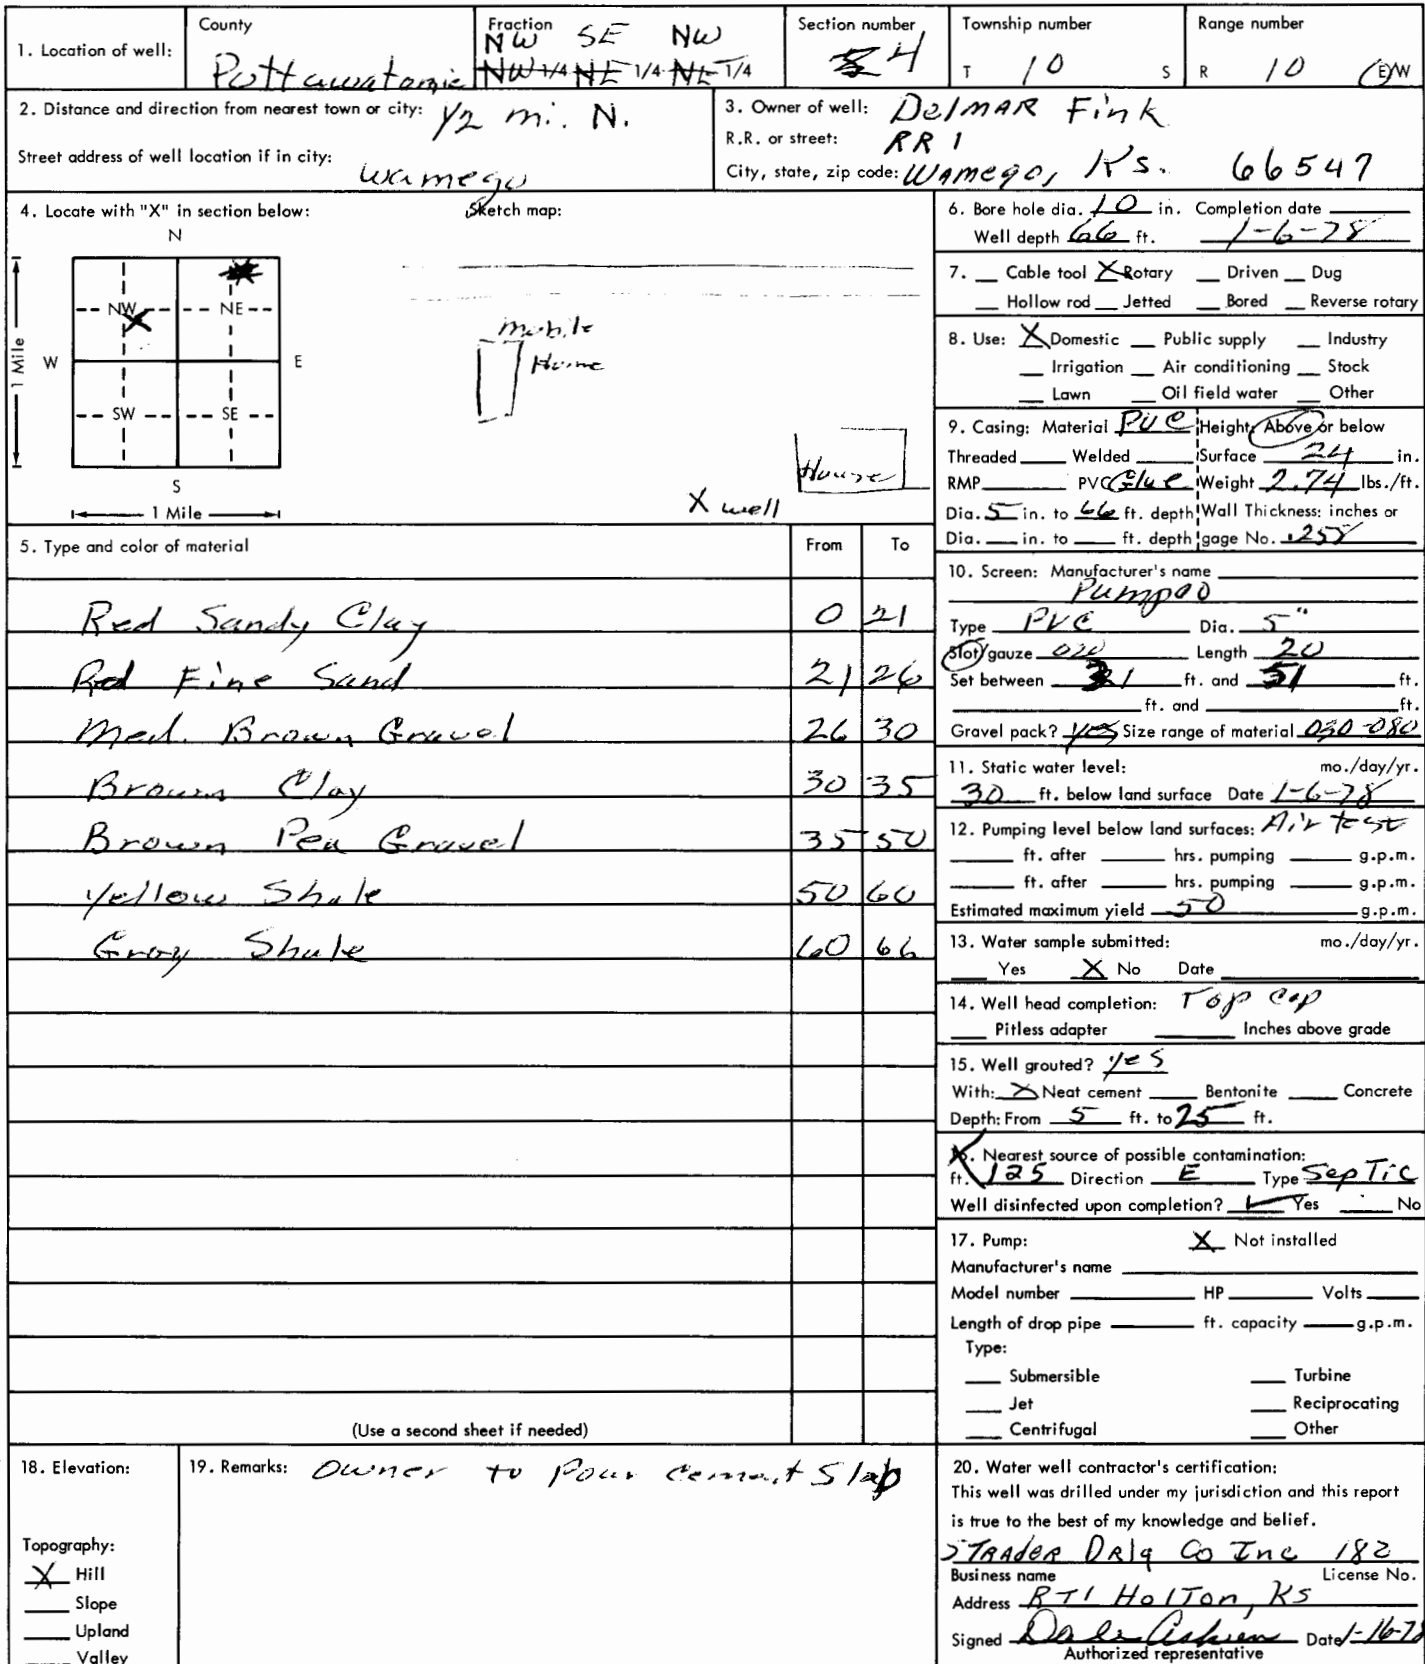 1. Location of well:
County
Pottawatomie
Fraction
NW SE NW
NW 1/4 NE 1/4 NE 1/4
Section number
4
Township number
T 10 S
Range number
R 10 E/W
2. Distance and direction from nearest town or city: 1/2 mi. N.
Street address of well location if in city:
Wamego
3. Owner of well: Delmar Fink
R.R. or street: RR 1
City, state, zip code: Wamego, Ks. 66547
4. Locate with "X" in section below:
N
NW NE
W E
SW SE
S
1 Mile
1 Mile
Sketch map:
Mobile
Home
House
X well
5. Type and color of material From To
Red Sandy Clay 0 21
Red Fine Sand 21 26
Med. Brown Gravel 26 30
Brown Clay 30 35
Brown Pea Gravel 35 50
Yellow Shale 50 60
Gray Shale 60 66
(Use a second sheet if needed)
6. Bore hole dia. 10 in. Completion date
Well depth 66 ft. 1-6-78
7. Cable tool X Rotary Driven Dug
Hollow rod Jetted Bored Reverse rotary
8. Use: X Domestic Public supply Industry
Irrigation Air conditioning Stock
Lawn Oil field water Other
9. Casing: Material PVC Height: Above or below
Threaded Welded Surface 24 in.
RMP PVC Glue Weight 2.74 lbs./ft.
Dia. 5 in. to 66 ft. depth Wall Thickness: inches or
Dia. in. to ft. depth gage No. .258
10. Screen: Manufacturer's name
Pumpco
Type PVC Dia. 5"
Slot/gauze 020 Length 20
Set between 31 ft. and 51 ft.
ft. and ft.
Gravel pack? yes Size range of material 030-080
11. Static water level: mo./day/yr.
30 ft. below land surface Date 1-6-78
12. Pumping level below land surfaces: Air test
ft. after hrs. pumping g.p.m.
ft. after hrs. pumping g.p.m.
Estimated maximum yield 50 g.p.m.
13. Water sample submitted: mo./day/yr.
Yes X No Date
14. Well head completion: Top Cap
Pitless adapter Inches above grade
15. Well grouted? yes
With: X Neat cement Bentonite Concrete
Depth: From 5 ft. to 25 ft.
16. Nearest source of possible contamination:
ft. 125 Direction E Type Septic
Well disinfected upon completion? ✓ Yes No
17. Pump: X Not installed
Manufacturer's name
Model number HP Volts
Length of drop pipe ft. capacity g.p.m.
Type:
Submersible Turbine
Jet Reciprocating
Centrifugal Other
18. Elevation:
Topography:
X Hill
Slope
Upland
Valley
19. Remarks: Owner to Pour Cement Slab
20. Water well contractor's certification:
This well was drilled under my jurisdiction and this report
is true to the best of my knowledge and belief.
Strader Drlg Co Inc 182
Business name License No.
Address RT1 Holton, KS
Signed Date 1-16-78
Authorized representative